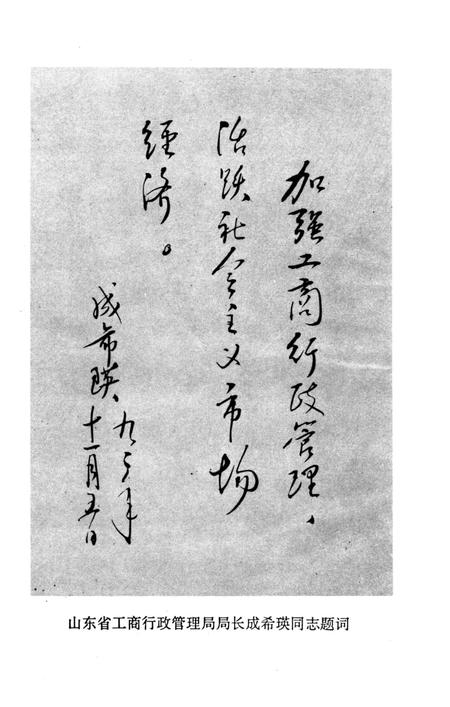 加强工商行政管理、
活跃社会主义市场
经济。
成希瑛、九三年
十一月五日
山东省工商行政管理局局长成希瑛同志题词